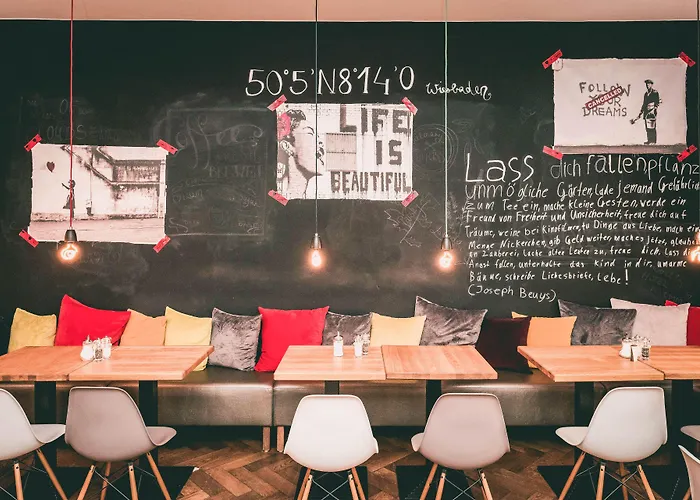 50°5'N8°14'O Wiesbaden
LIFE
IS
BEAUTIFUL
FOLLOW
YOUR
DREAMS
CANCELLED
Lass dich fallen, pflanz
unmögliche Gärten, lade jemand Gefährlich
zum Tee ein, mache kleine Gesten, werde ein
Freund von Freiheit und Unsicherheit, freue dich auf
Träume, weine bei Kinofilmen, tu Dinge aus Liebe, mach eine
Menge Nickerchen, gib Geld weiter, mach es jetzt, glaube
an Zauberei, lache, freue dich, Lass die
Angst fallen, unterhalte das Kind in dir, umarme
Bäume, schreibe Liebesbriefe, Lebe!
(Joseph Beuys)